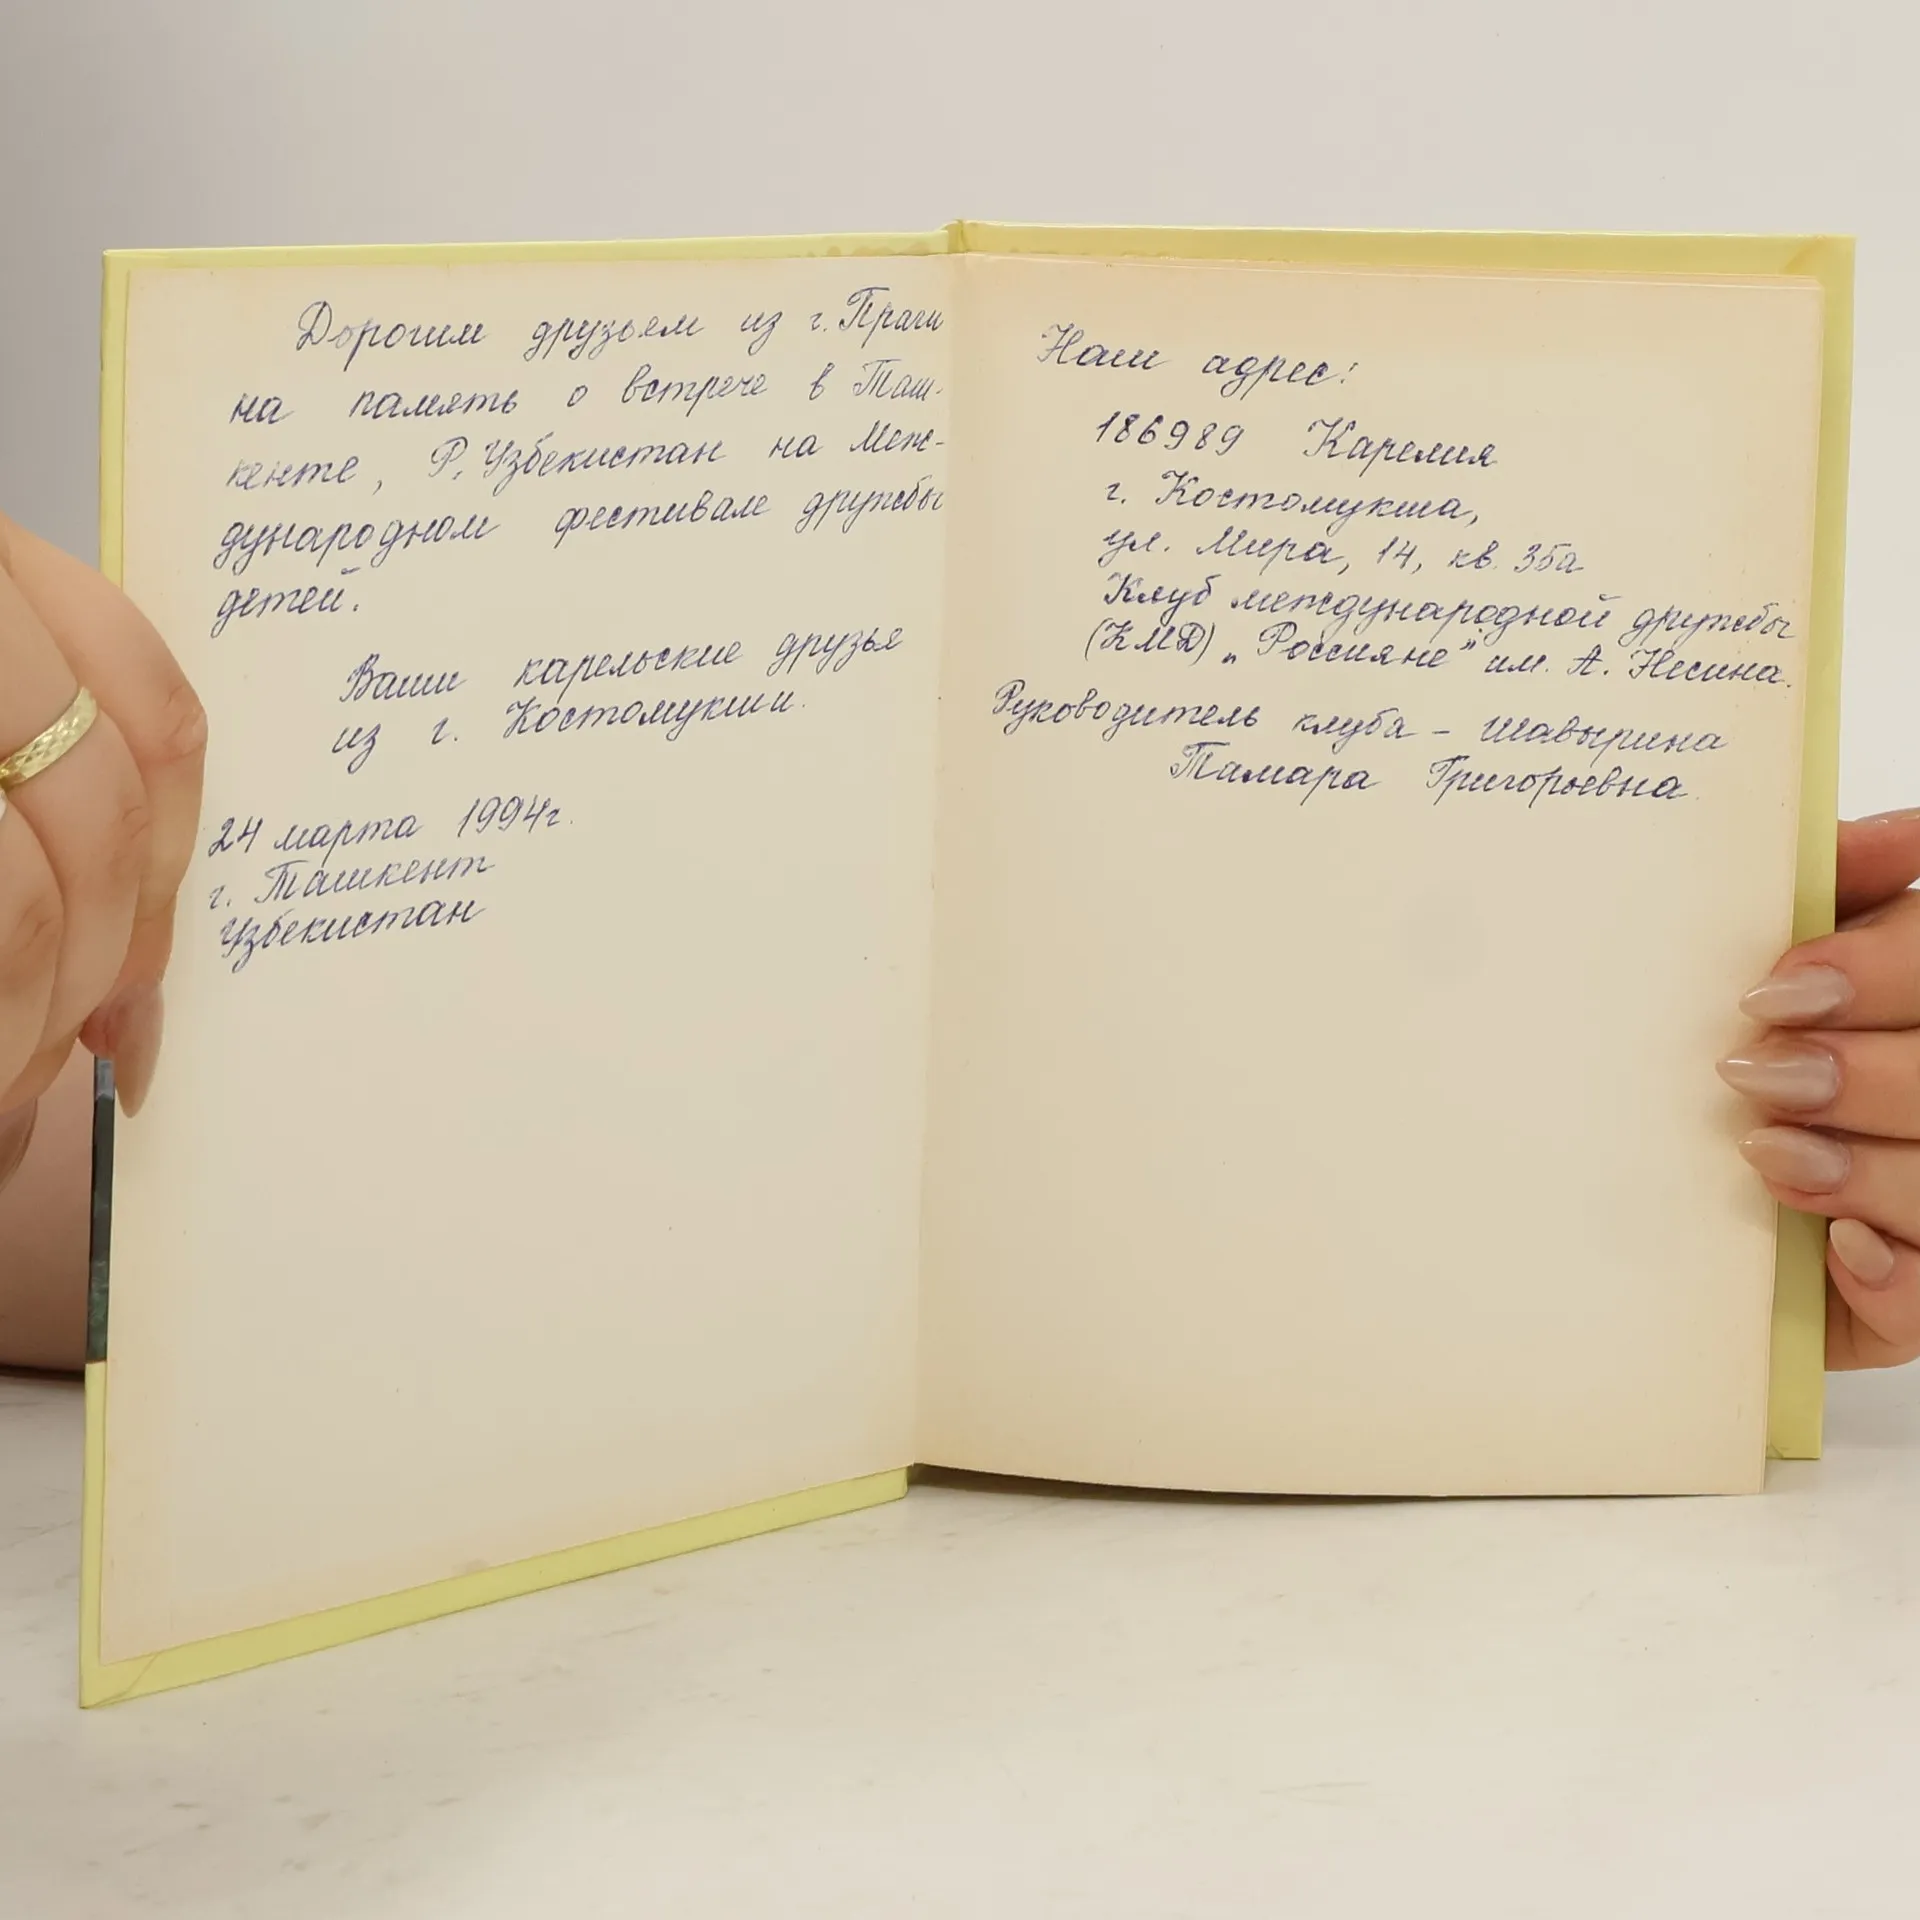 Дорогим друзьям из г. Праги
на память о встрече в Таш-
кенте, Р. Узбекистан на Меж-
дународном фестивале дружбы
детей.
Ваши карельские друзья
из г. Костомукши.
24 марта 1994г.
г. Ташкент
Узбекистан
Наш адрес:
186989 Карелия
г. Костомукша,
ул. Мира, 14, кв. 35а
Клуб международной дружбы
(КМД) „Россияне" им. А. Несина.
Руководитель клуба – Шавырина
Тамара Григорьевна.